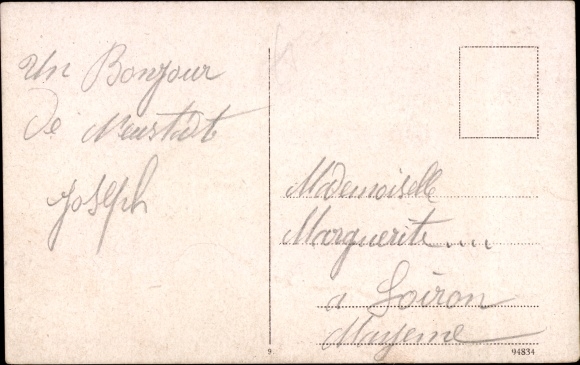 Un Bonjour
de Neustadt
Joseph
Mademoiselle
Marguerite....
a Loiron
Mayenne
9
94834